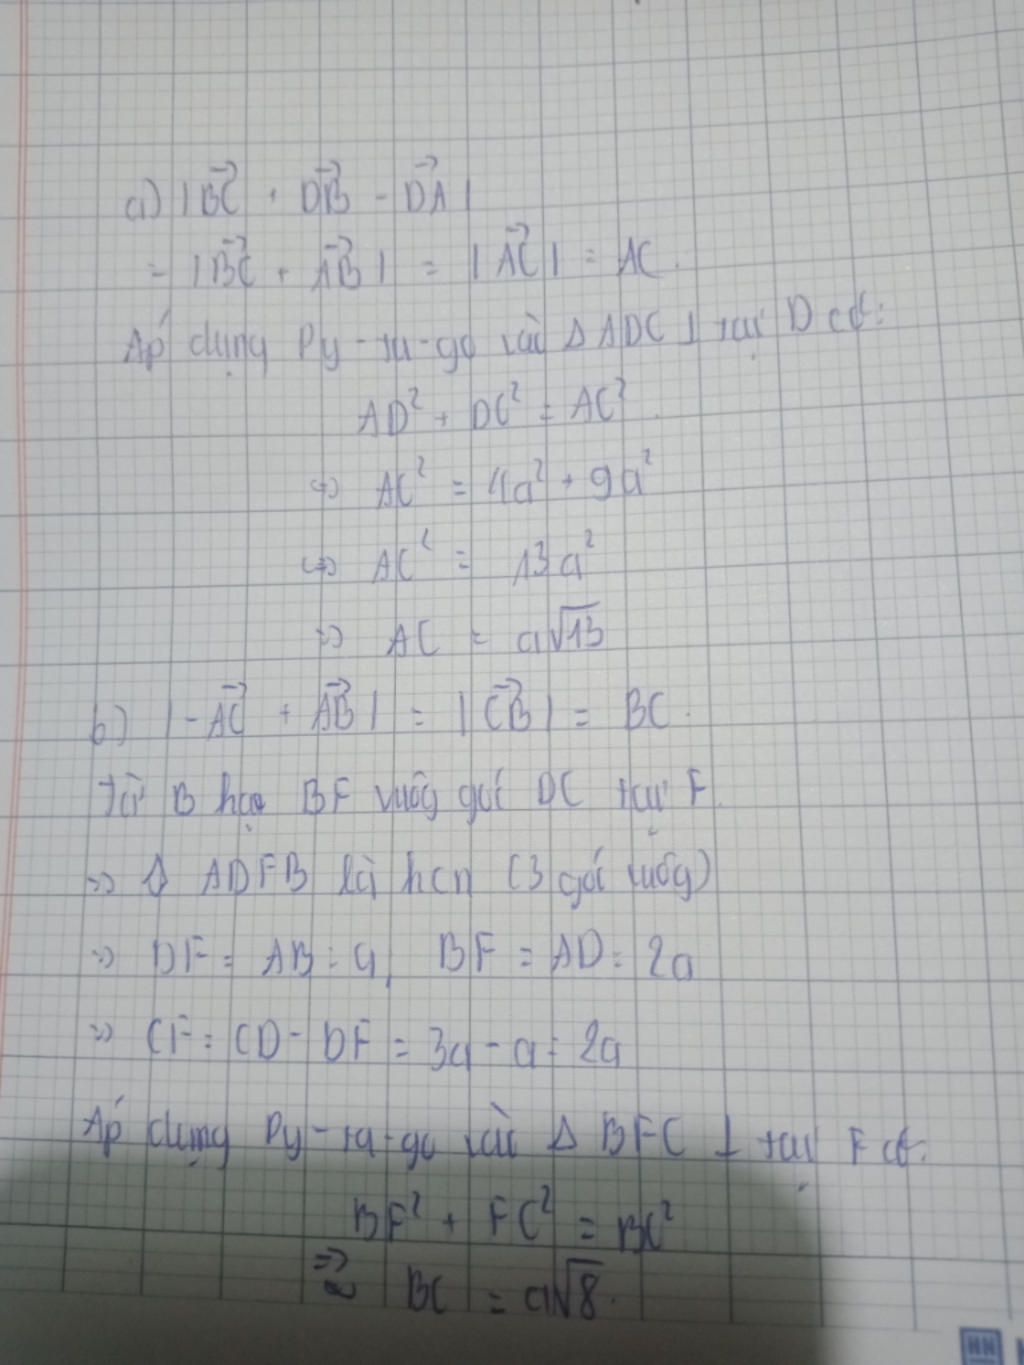 a) |BC→ + DB→ - DA→|
= |BC→ + AB→| = |AC→| = AC.
Áp dụng Py-ta-go vào Δ ADC ⊥ tại D có:
AD² + DC² = AC².
⇔ AC² = 4a² + 9a²
⇔ AC² = 13a²
⇒ AC = a√13
b) |-AC→ + AB→| = |CB→| = BC.
Từ B hạ BF vuôg góc DC tại F.
⇒ ◊ ADFB là hcn (3 góc vuôg)
⇒ DF = AB = a, BF = AD = 2a
⇒ CF = CD - DF = 3a - a = 2a
Áp dụng Py-ta-go vào Δ BFC ⊥ tại F có:
BF² + FC² = BC²
⇒ BC = a√8.
HN